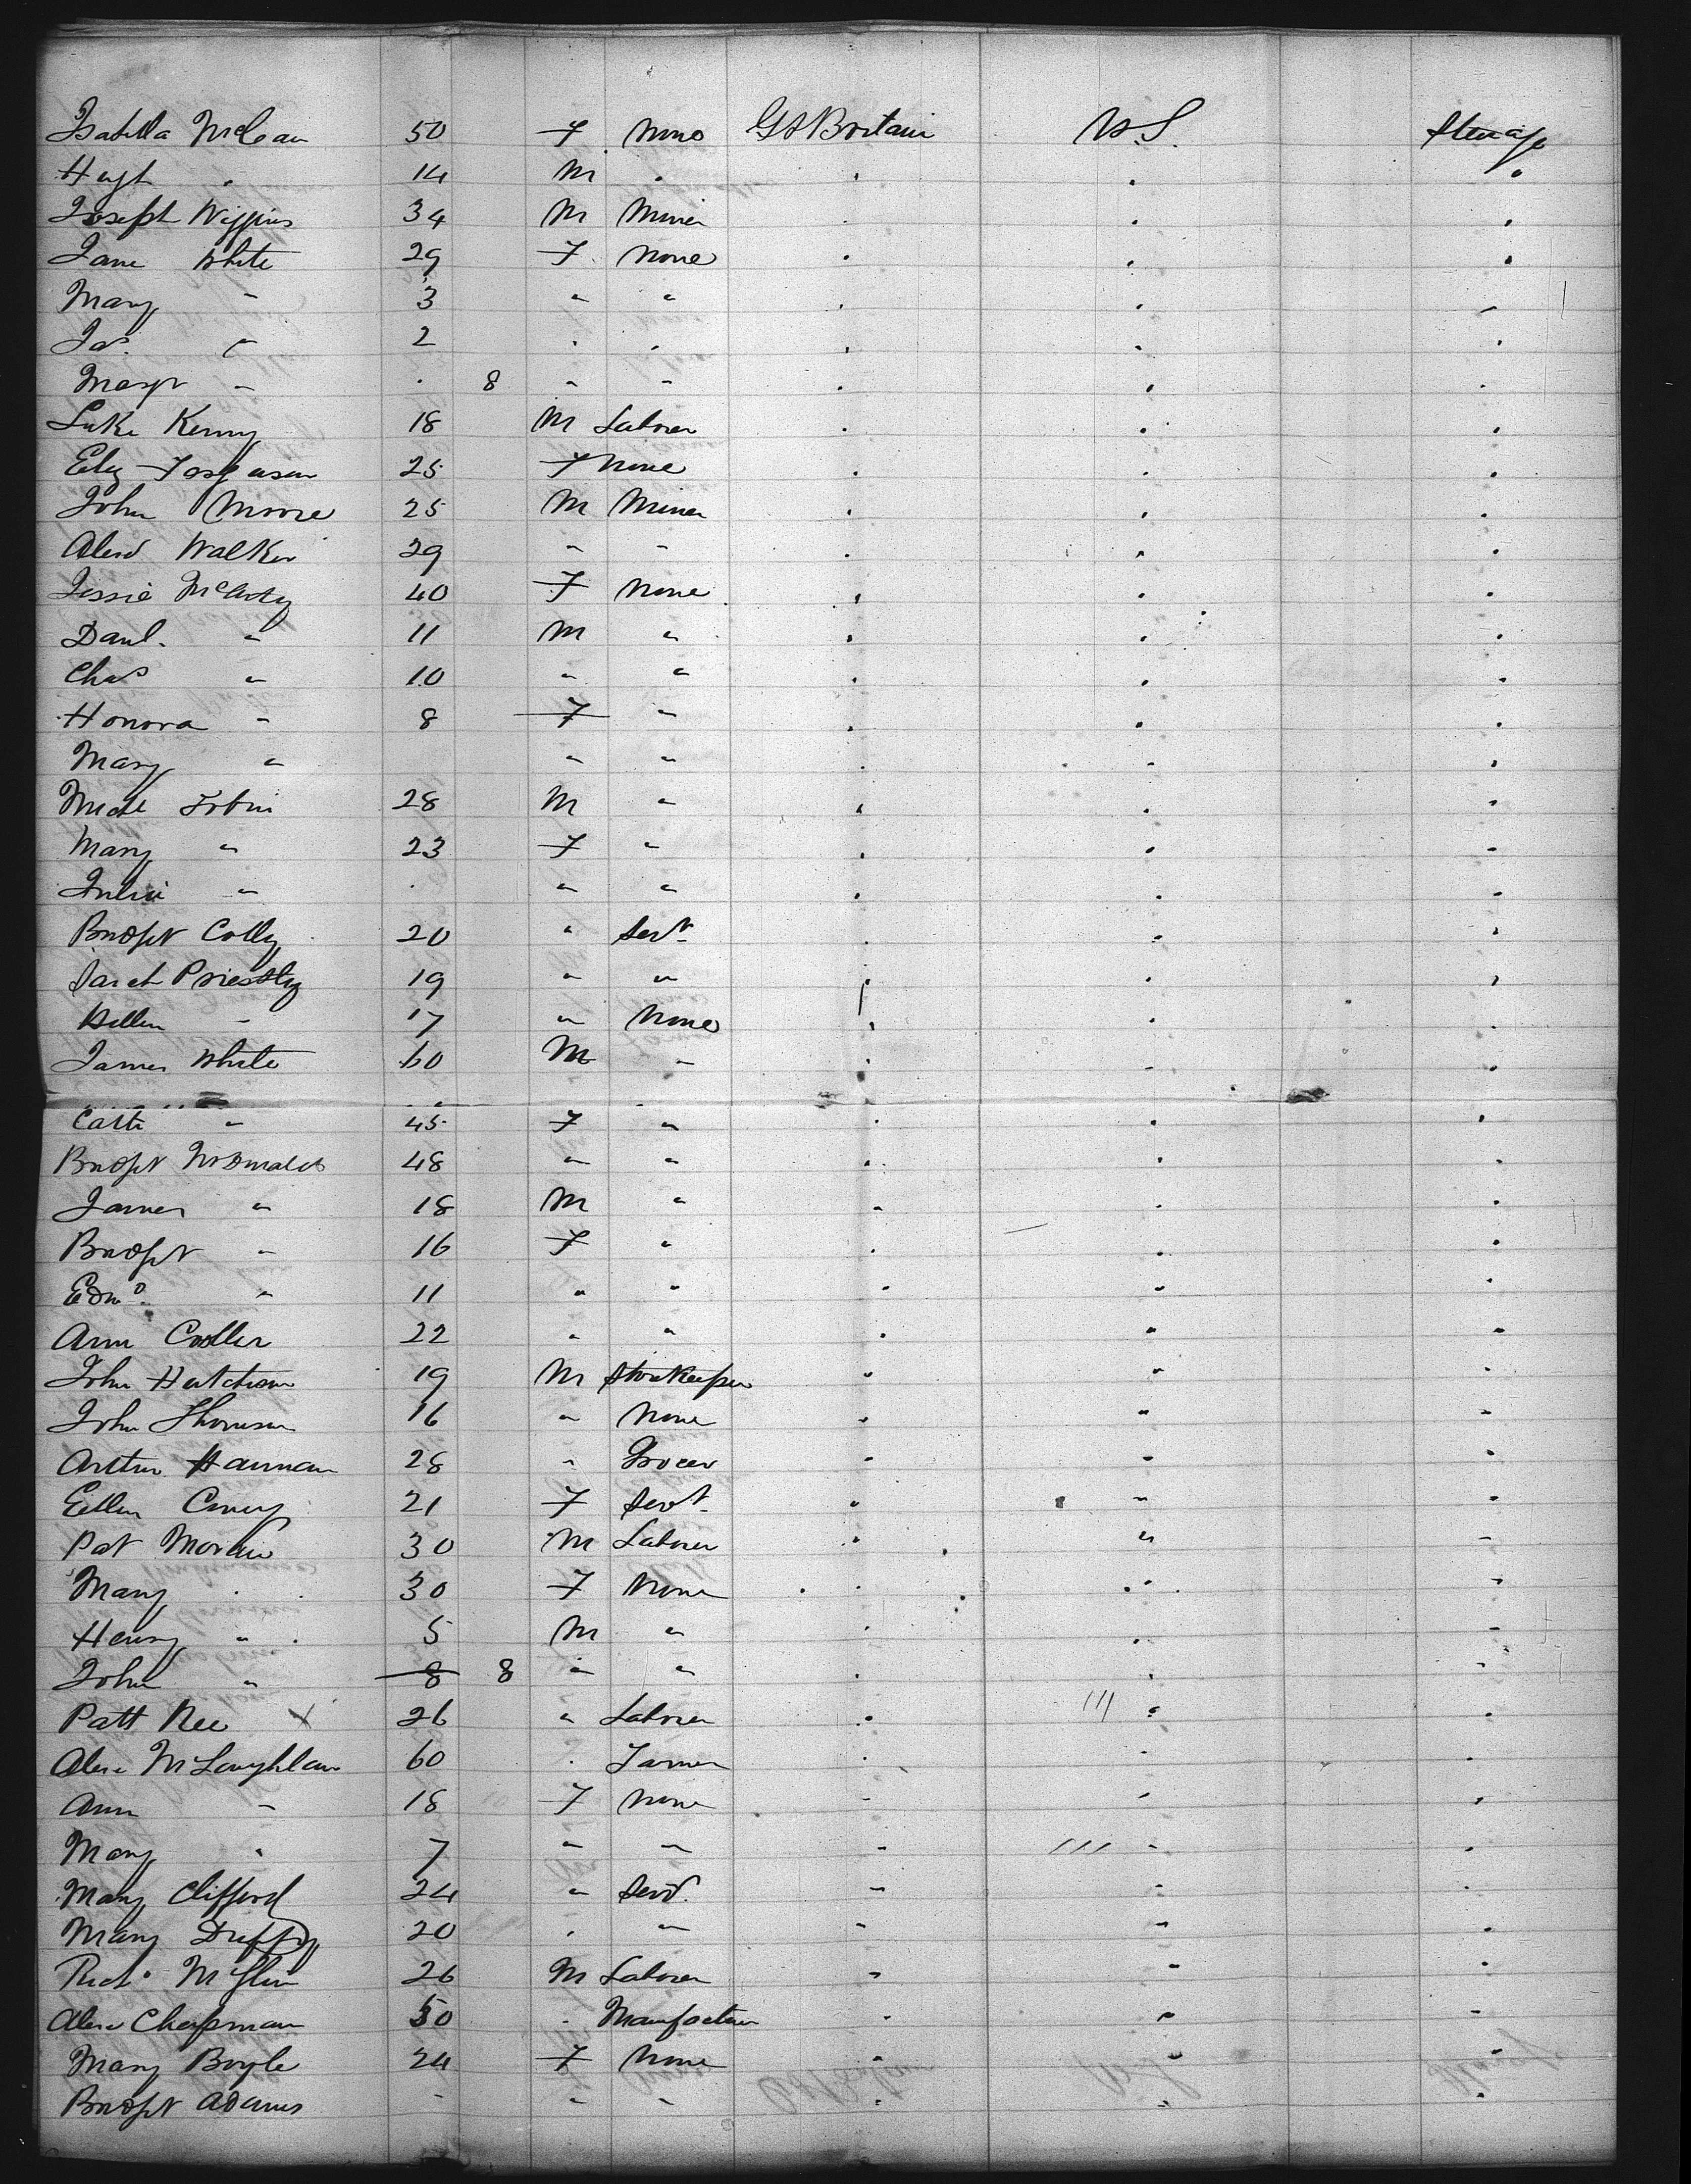 Isabella McLean 50 F None Gt Britain U.S. Steerage
Hugh " 14 M " " " "
Joseph Wiggins 34 M Miner " " "
Jane White 29 F None " " "
Mary " 3 " " " " "
Jas. " 2 " " " " "
Margt " " 8 " " " " "
Luke Kenny 18 M Laborer " " "
Eliz Ferguson 25 F None " " "
John Moore 25 M Miner " " "
Alexd Walker 29 " " " " "
Jessie McCarty 40 F None " " "
Danl. " 11 M " " " "
Chas " 10 " " " " "
Honora " 8 F " " " "
Mary " " " " " "
Michl Tobin 28 M " " " "
Mary " 23 F " " " "
Julia " " " " " " "
Bridget Colly 20 " Servt " " "
Sarah Priestly 19 " " " " "
Hellen " 17 " None " " "
James White 60 M " " " "
Cath " 45 F " " " "
Bridgt McDonald 48 " " " " "
James " 18 M " " " "
Bridgt " 16 F " " " "
Edmd. " 11 " " " " "
Ann 22 " " " " "
John Hutchison 19 M Storekeeper " " "
John Thomson 16 " None " " "
Arthur Hannan 28 " Grocer " " "
Ellen 21 F Servt " " "
Pat Moran 30 M Laborer " " "
Mary " 30 F None " " "
Henry " 5 M " " " "
John " 8 8 " " " " "
Patt Nee X 26 " Laborer " " "
Alex McLaughlan 60 " Farmer " " "
Ann " 18 F None " " "
Mary " 7 " " " " "
Mary Clifford 24 " Servt. " " "
Mary Duffy 20 " " " " "
Richd 26 M Laborer " " "
Alex Chapman 50 " Manufacturer " " "
Mary Boyle 24 F None " " "
Bridgt Adams " " " " " "